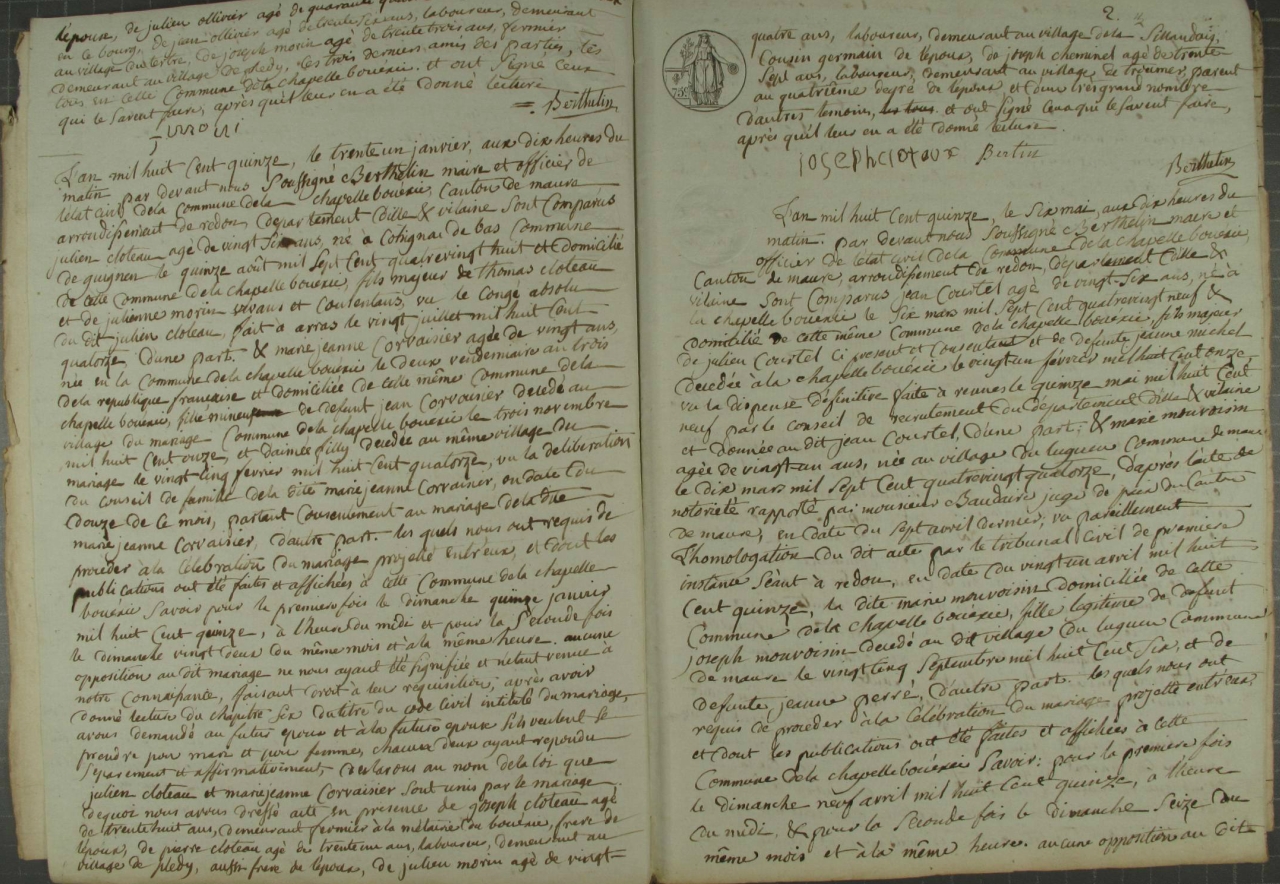 l'époux, de julien ollivier agé de quarante
en le bourg, de jean ollivier agé de trente six ans, laboureur, demeurant
au village du tertre, de joseph morin agé de trente trois ans, fermier
demeurant au village de pledy, les trois derniers amis des parties, tes
tous en cette Commune de la chapelle bouëxic. et ont Signé ceux
qui le Savent faire, après qu'il leur en a été donné lecture
Berthelin
L'an mil huit Cent quinze, le trente un janvier, aux dix heures du
matin par devant nous Soussigné Berthelin maire et officier de
l'état civil de la Commune de la chapelle bouëxic, Canton de maure
arrondissement de redon, departement dille & vilaine Sont Comparus
julien cloteau agé de vingt Six ans, né à Cotignac de bas Commune
de guignen le quinze août mil Sept Cent quatrevingt huit et domicilié
de cette Commune de la chapelle bouëxic, fils majeur de Thomas cloteau
et de julienne morin vivans et Consentans, vu le Congé absolu
du dit julien cloteau, fait à arras le vingt juillet mil huit Cent
quatorze, d'une part. & marie jeanne Corvaisier agée de vingt ans,
née en la Commune de la chapelle bouëxic le deux vendemiaire an trois
de la republique française et domiciliée de cette même Commune de la
chapelle bouëxic, fille mineure de defunt jean Corvaisier decedé au
village du mariage Commune de la chapelle bouëxic le trois novembre
mil huit Cent onze, et d'aimée filly decedée au même village du
mariage le vingt Cinq fevrier mil huit Cent quatorze, vu la deliberation
du Conseil de famille de la dite marie jeanne Corvaisier, en date du
douze de ce mois, portant Consentement au mariage de la dite
marie jeanne Corvaisier, d'autre part. les quels nous ont requis de
proceder à la Célébration du mariage projetté entr'eux, et dont les
publications ont été faites et affichées à cette Commune de la chapelle
bouëxic Savoir pour la premiere fois le dimanche quinze janvier
mil huit Cent quinze, à l'heure du midi et pour la Seconde fois
le dimanche vingt deux du même mois et à la même heure. aucune
opposition au dit mariage ne nous ayant été signifiée et n'etant venue à
notre Connaissance, faisant droit à leur requisition, après avoir
donné lecture du chapitre Six du titre du code Civil intitulé du mariage,
avons demandé au futur epoux et à la future epouse S'ils veulent Se
prendre pour mari et pour femme, chacun d'eux ayant repondu
Separement et affirmativement, declarons au nom de la loi que
julien cloteau et marie jeanne Corvaisier Sont unis par le mariage
de quoi nous avons dressé acte en presence de joseph cloteau agé
de trente huit ans, demeurant fermier à la métairie du bouëxic, frere de
l'époux, de pierre cloteau agé de trente un ans, laboureur, demeurant au
village de pledy, aussi frere de l'époux, de julien morin agé de vingt-
2.
75c
quatre ans, laboureur, demeurant au village de la Sillandais,
Cousin germain de l'epoux, de joseph cheminel agé de trente
Sept ans, laboureur, demeurant au village de treumer, parent
au quatrième degré de l'epoux et d'un très grand nombre
d'autres temoins, et ont signé ceux qui le Savent faire,
après qu'il leur en a été donné lecture.
josephclotaux Bertin
Berthelin
L'an mil huit Cent quinze, le Six mai, aux dix heures du
matin. par devant nous Soussigné Berthelin maire et
officier de l'état civil de la Commune de la chapelle bouëxic,
Canton de maure, arrondissement de redon, departement dille &
vilaine Sont Comparus jean Courtel agé de vingt-Six ans, né à
la chapelle bouëxic le Six mars mil Sept Cent quatrevingt neuf &
domicilié de cette même Commune de la chapelle bouëxic, fils majeur
de julien Courtel Ci present et Consentant et de defunte jeanne michel
decedée à la chapelle bouëxic le vingt un février mil huit Cent onze,
vu la dispense definitive faite à rennes le quinze mai mil huit Cent
neuf par le Conseil de recrutement du département dille & vilaine
et donnée au dit jean Courtel, d'une part: & marie mouvoisin
agée de vingt un ans, née au village du luguen Commune de maure
le dix mars mil Sept Cent quatrevingt quatorze, d'après l'acte de
notoriété rapporté par monsieur Baudaire juge de paix du Canton
de maure, en date du Sept avril dernier, vu pareillement
L'homologation du dit acte par le tribunal Civil de premiere
instance Séant à redon, en date du vingt un avril mil huit
Cent quinze, la dite marie mouvoisin domiciliée de cette
Commune de la chapelle bouëxic, fille légitime de defunt
joseph mouvoisin decedé au dit village du luguen Commune
de maure le vingt Cinq Septembre mil huit Cent Six, et de
defunte jeanne perré, d'autre part. les quels nous ont
requis de proceder à la Célébration du mariage projetté entr'eux,
et dont les publications ont été faites et affichées à cette
Commune de la chapelle bouëxic Savoir: pour la premiere fois
le dimanche neuf avril mil huit Cent quinze, à l'heure
du midi. & pour la Seconde fois le dimanche Seize du
même mois et à la même heure. aucune opposition au dite